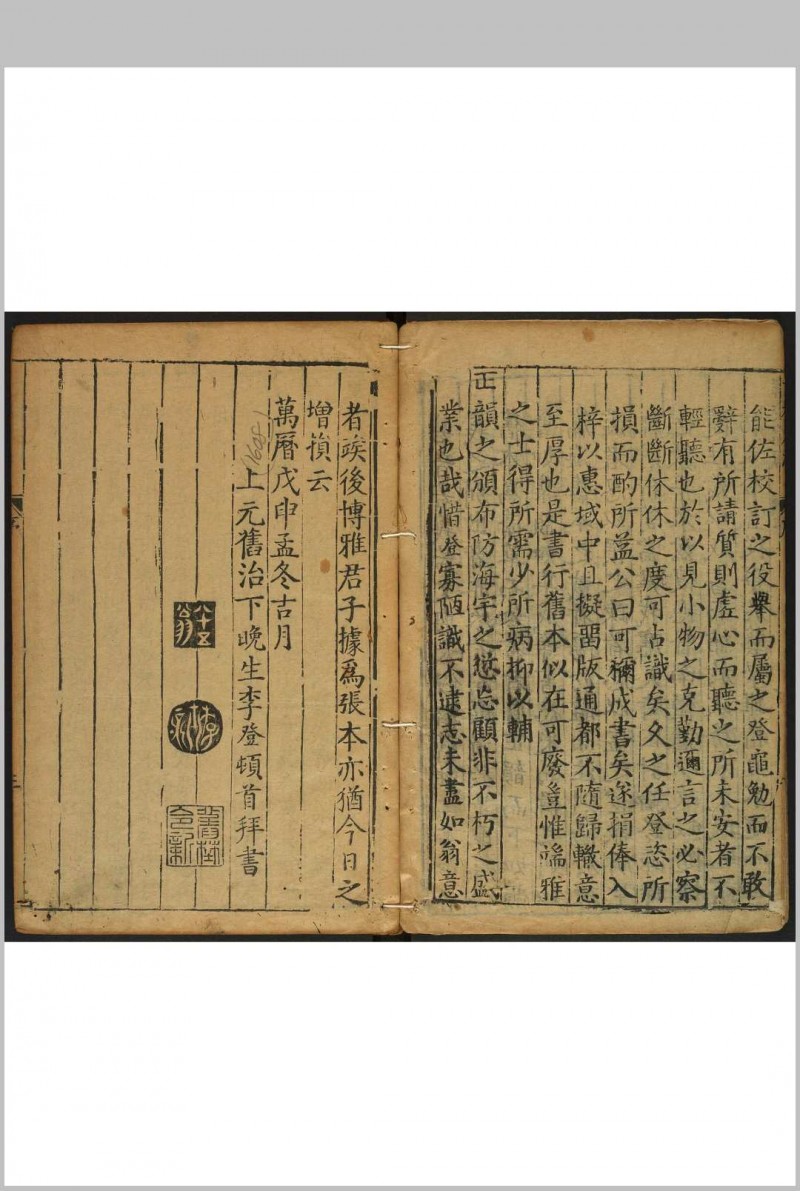 能佐校訂之役舉而屬之登黽勉而不敢
辭有所請質則虛心而聽之所未安者不
輕聽也於以見小物之克勤邇言之必察
斷斷休休之度可占識矣久之任登恣所
損而酌所益公曰可彌成書矣遂捐俸入
梓以惠域中且擬畱版通都不隨歸轍意
至厚也是書行舊本似在可廢豈惟耑雅
之士得所需少所病抑以輔
正韻之頒布防海宇之愆忘顧非不朽之盛
業也哉惜登寡陋識不逮志未盡如翁意
者竢後博雅君子據爲張本亦猶今日之
增損云
萬曆戊申孟冬吉月
上元舊治下晚生李登頓首拜書
八十五翁